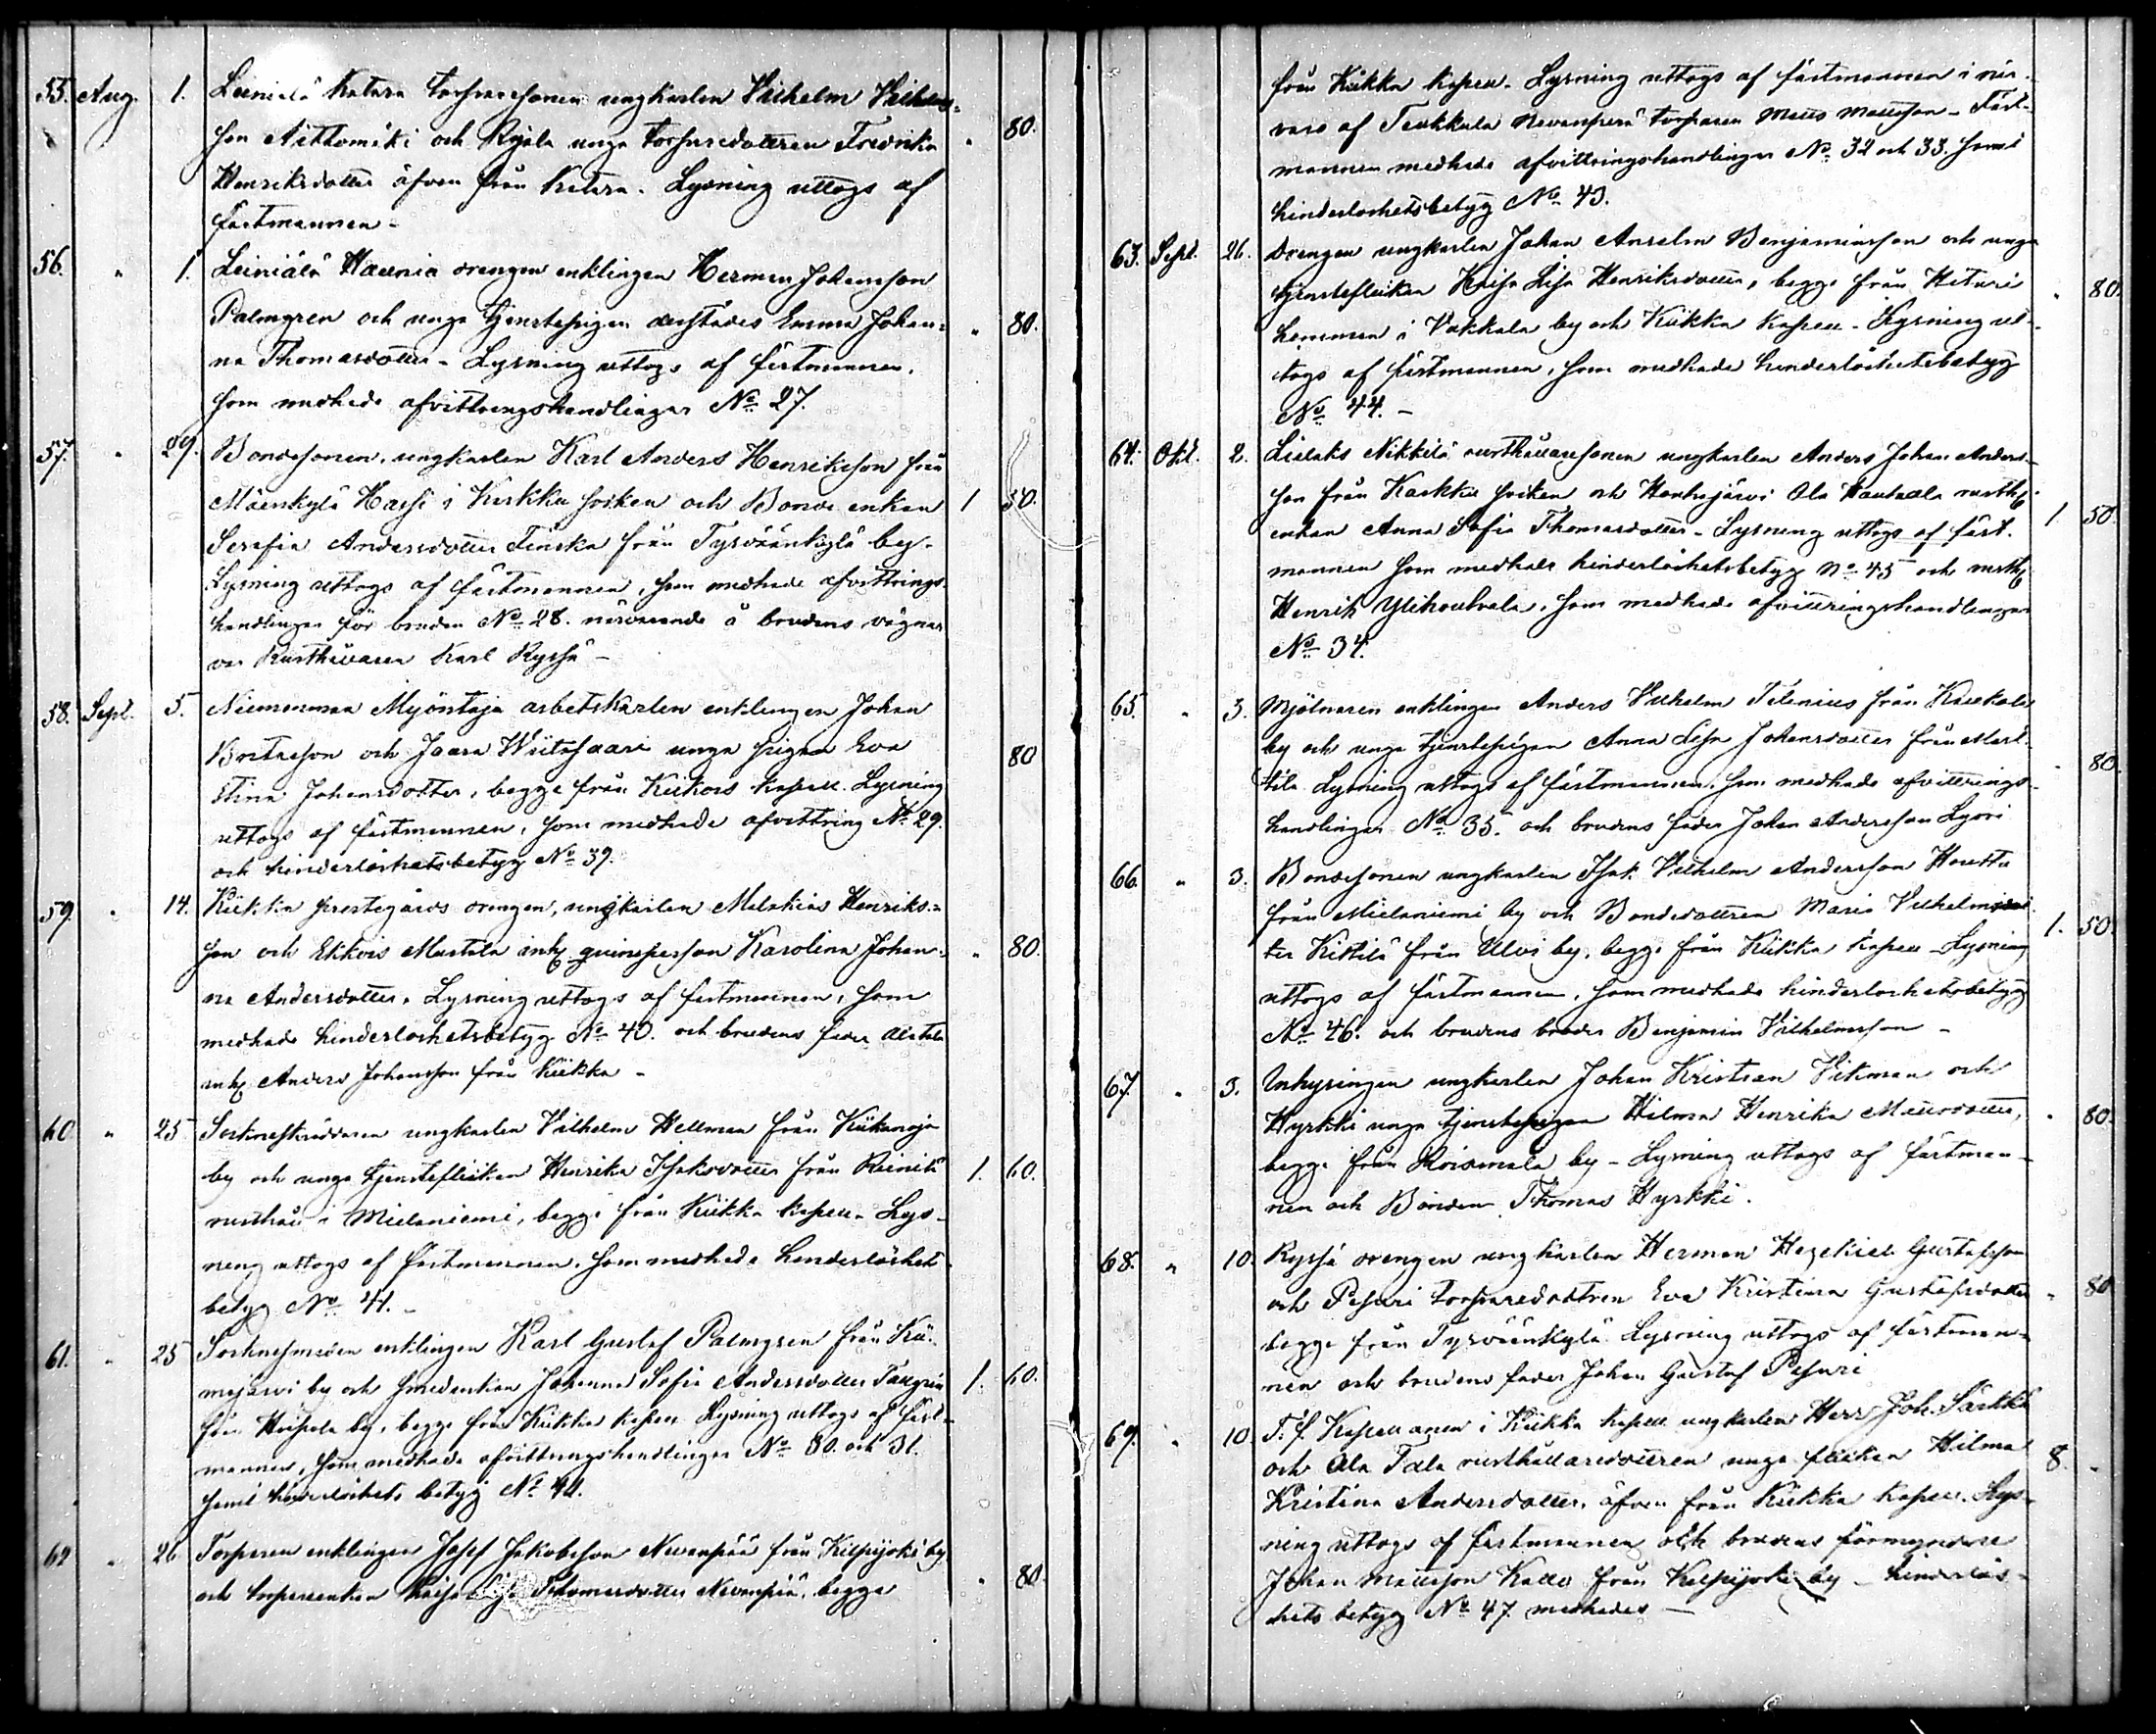 55. Aug. 1. Leiniälä Ketara torparesonen ungkarlen Vilhelm Vilhelms-
son Aittomäki och Ryölä unga torparedottren Fredrika " 80.
Henriksdotter äfven från Ketara. Lysning uttogs af
fästmannen.
56. " 1. Leiniälä Haunia drengen enklingen Herman Johansson
Palmgren och unga tjenstepigan derstädes Emma Johan- " 80.
na Thomasdotter. Lysning uttogs af fästmannen,
som medhade afvittringshandlingar No 27.
57. " 29. Bondesonen, ungkarlen Karl Anders Henriksson från
Mäenkylä Hassi i Karkku socken och Bonde enkan 1 50.
Serafia Andersdotter Finska från Tyrväänkylä by.
Lysning uttogs af fästmannen, som medhade afvittrings-
handlingar för bruden No 28. närvarande å brudens vägnar
var Rusthållaren Karl Ryssä
58. Sept. 5. Niemenmaa Myöntäjä arbetskarlen enklingen Johan
och Jaara Wiitasaari unga pigan Eva 80
Stina Johansdotter, begge från Kiikois kapell. Lysning
uttogs af fästmannen, som medhade afvittring No 29.
och hinderlöshetsbetyg No 39.
59. " 14. Kiikka prestegårds drengen, ungkarlen Malakias Henriks-
son och Ekkois Mattila inh. qvinsperson Karolina Johan- " 80.
na Andersdotter. Lysning uttogs af fästmannen, som
medhade hinderlöshetsbetyg No 40. och brudens fader
inh. Anders Johansson från Kiikka
60. " 25. Sockneskräddaren ungkarlen Vilhelm Hellman från Kiikanoja
by och unga tjensteflickan Henrika Isaksdotter från 1. 60.
rusthåll i Mielaniemi, begge från Kiikka kapell. Lys-
ning uttogs af fästmannen, som medhade hinderlöshets-
betyg No 41.
61. " 25 Socknesmeden enklingen Karl Gustaf Palmgren från Kii-
majärvi by och smedenkan Johanna Sofia Andersdotter 1. 60.
från by, begge från Kiikka kapell Lysning uttogs af fäst-
mannen, som medhade afvittringshandlingar No 30. och 31.
samt hinderlöshets betyg No
62 " 26 Torparen enklingen Josef Jakobsson Nevanpää från Kilpijoki by
och torpareenkan Kaisa Thomasdotter Nevanpää, begge " 80.
från Kiikka kapell. Lysning uttogs af fästmannen i när-
varo af Teukkala Nevanperä torparen Matts Mattsson. Fäst-
mannen medhade afvittringshandlingar No 32 och 33. samt
hinderloshetsbetyg No 43.
63. Sept. 26. Drengen ungkarlen Johan Anselm Benjaminsson och unga
tjensteflickan Kaisa Lisa Henriksdotter, begge från Heturi " 80.
hemman i Vakkala by och Kiikka kapell. Lysning ut-
togs af fästmannen, som medhade hinderlöshetsbetyg
No 44.
64. Okt. 2. Lielaks Nikkilä rusthållaresonen ungkarlen Anders Johan Anders-
son från Karkku socken och Houhajärvi Ala Hautaala rusth.
enkan Anna Sofia Thomasdotter. Lysning uttogs af fäst- 1. 50
mannen som medhade hinderlöshetsbetyg No 45 och rusth.
Henrik som medhade afvittringshandlingar
No 34.
65. " 3. Mjölnaren enklingen Anders Vilhelm från
by och unga tjenstepigan Anna Lisa Johansdotter från Mart-
tila. Lysning uttogs af fästmannen, som medhade afvittrings- " 80.
handlingar No 35. och brudens fader Johan Andersson
66. " 3. Bondesonen ungkarlen Isak Vilhelm Andersson
från Mielaniemi by och Bondedottren Maria Vilhelmsdot-
ter Kittilä från Ulvi by, begge från Kiikka kapell. Lysning 1. 50.
uttogs af fästmannen, som medhade hinderlöshetsbetyg
No 46. och brudens broder Benjamin Vilhelmsson
67. " 3. Inhysingen ungkarlen Johan Kristian Vikman och
Hyrkki unga tjenstepigan Hilma Henrika Mattsdotter, " 80.
begge från Roismala by. Lysning uttogs af fästman-
nen och Bonden Thomas Hyrkki.
68. " 10. Ryssä drengen ungkarlen Herman Hezekiel Gustafsson
och Pesuri torparedottren Eva Kristina Gustafsdotter " 80
begge från Tyrväänkylä. Lysning uttogs af fästman-
nen och brudens fader Johan Gustaf Pesuri
69. " 10. T. f. Kapellanen i Kiikka kapell ungkarlen Herr Joh. Särkkä
och Ala Tala rusthållaredottren unga flickan Hilma 8. "
Kristina Andersdotter, äfven från Kiikka kapell. Lys-
ning uttogs af fästmannen och brudens förmyndare
Johan Mattsson Kallo från Kilpijoki by. hinderlös-
hets betyg No 47 medhades